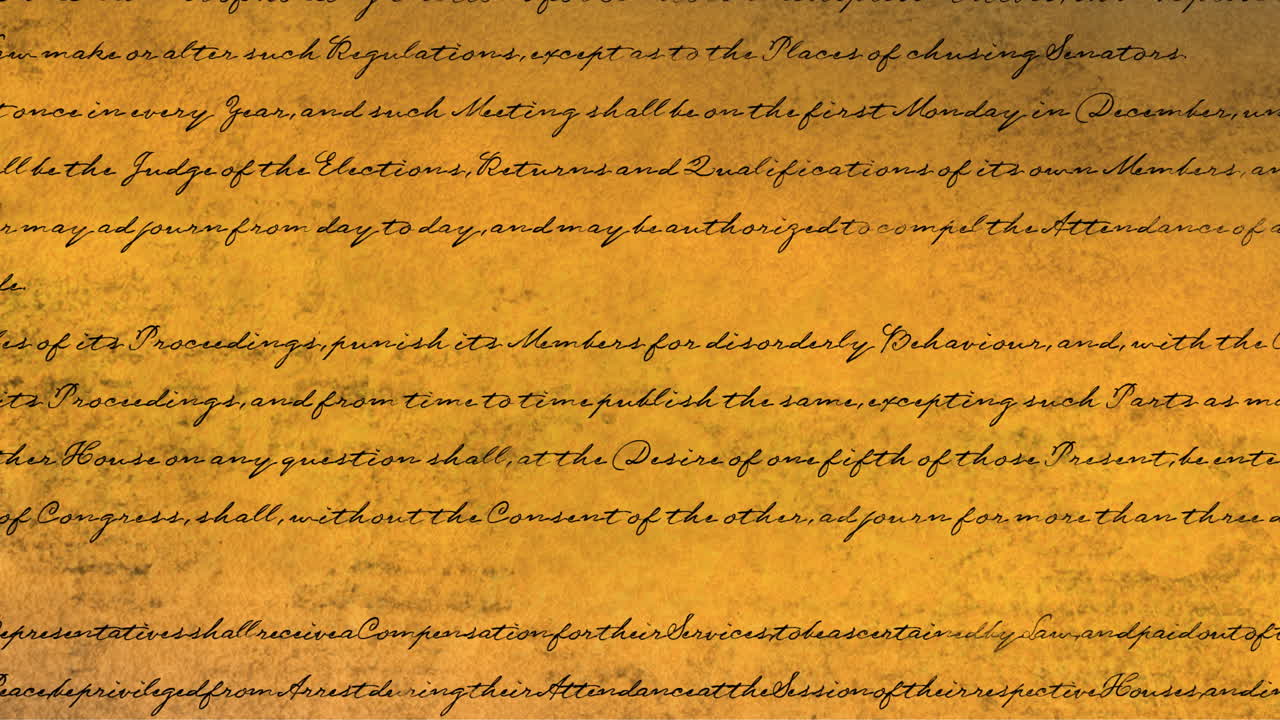 aw make or alter such Regulations, except as to the Places of chusing Senators.
t once in every Year, and such Meeting shall be on the first Monday in December, un
ll be the Judge of the Elections, Returns and Qualifications of its own Members, an
r may adjourn from day to day, and may be authorized to compel the Attendance of a
le.
les of its Proceedings, punish its Members for disorderly Behaviour, and, with the C
its Proceedings, and from time to time publish the same, excepting such Parts as ma
ther House on any question shall, at the Desire of one fifth of those Present, be ente
of Congress, shall, without the Consent of the other, adjourn for more than three d
Representatives shall receive a Compensation for their Services, to be ascertained by Law, and paid out of t
Peace, be privileged from Arrest during their Attendance at the Session of their respective Houses, and in